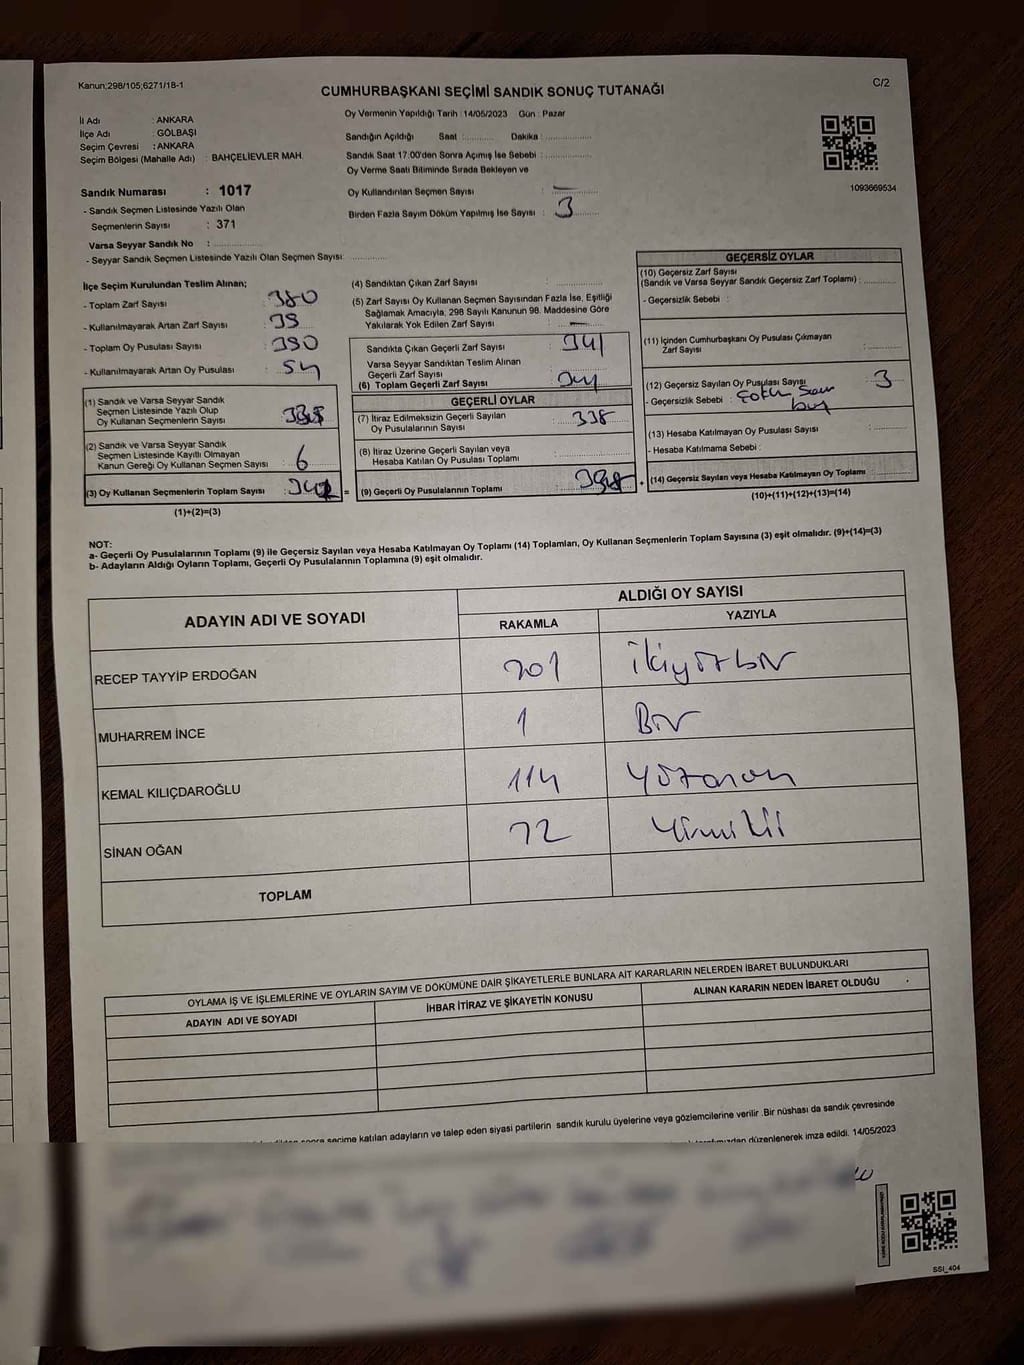 Kanun;298/105;6271/18-1
C/2
CUMHURBAŞKANI SEÇİMİ SANDIK SONUÇ TUTANAĞI
İl Adı : ANKARA
İlçe Adı : GÖLBAŞI
Seçim Çevresi : ANKARA
Seçim Bölgesi (Mahalle Adı) : BAHÇELİEVLER MAH.
Sandık Numarası : 1017
- Sandık Seçmen Listesinde Yazılı Olan
Seçmenlerin Sayısı : 371
Varsa Seyyar Sandık No :
- Seyyar Sandık Seçmen Listesinde Yazılı Olan Seçmen Sayısı:
Oy Vermenin Yapıldığı Tarih : 14/05/2023 Gün : Pazar
Sandığın Açıldığı Saat : Dakika :
Sandık Saat 17:00'den Sonra Açımış İse Sebebi :
Oy Verme Saati Bitiminde Sırada Bekleyen ve
Oy Kullandırılan Seçmen Sayısı :
Birden Fazla Sayım Döküm Yapılmış İse Sayısı : 3
1093669534
İlçe Seçim Kurulundan Teslim Alınan;
- Toplam Zarf Sayısı : 380
- Kullanılmayarak Artan Zarf Sayısı : 39
- Toplam Oy Pusulası Sayısı : 390
- Kullanılmayarak Artan Oy Pusulası : 54
(1) Sandık ve Varsa Seyyar Sandık
Seçmen Listesinde Yazılı Olup
Oy Kullanan Seçmenlerin Sayısı
(2) Sandık ve Varsa Seyyar Sandık
Seçmen Listesinde Kayıtlı Olmayan
Kanun Gereği Oy Kullanan Seçmen Sayısı : 6
(3) Oy Kullanan Seçmenlerin Toplam Sayısı
=
(1)+(2)=(3)
(4) Sandıktan Çıkan Zarf Sayısı :
(5) Zarf Sayısı Oy Kullanan Seçmen Sayısından Fazla İse, Eşitliği
Sağlamak Amacıyla, 298 Sayılı Kanunun 98. Maddesine Göre
Yakılarak Yok Edilen Zarf Sayısı :
Sandıkta Çıkan Geçerli Zarf Sayısı : 341
Varsa Seyyar Sandıktan Teslim Alınan
Geçerli Zarf Sayısı
(6) Toplam Geçerli Zarf Sayısı 341
GEÇERLİ OYLAR
(7) İtiraz Edilmeksizin Geçerli Sayılan
Oy Pusulalarının Sayısı : 338
(8) İtiraz Üzerine Geçerli Sayılan veya
Hesaba Katılan Oy Pusulası Toplamı
(9) Geçerli Oy Pusulalarının Toplamı 338
+
GEÇERSİZ OYLAR
(10) Geçersiz Zarf Sayısı
(Sandık ve Varsa Seyyar Sandık Geçersiz Zarf Toplamı) :
- Geçersizlik Sebebi :
(11) İçinden Cumhurbaşkanı Oy Pusulası Çıkmayan
Zarf Sayısı :
(12) Geçersiz Sayılan Oy Pusulası Sayısı : 3
- Geçersizlik Sebebi :
(13) Hesaba Katılmayan Oy Pusulası Sayısı :
- Hesaba Katılmama Sebebi :
(14) Geçersiz Sayılan veya Hesaba Katılmayan Oy Toplamı
(10)+(11)+(12)+(13)=(14)
NOT:
a- Geçerli Oy Pusulalarının Toplamı (9) ile Geçersiz Sayılan veya Hesaba Katılmayan Oy Toplamı (14) Toplamları, Oy Kullanan Seçmenlerin Toplam Sayısına (3) eşit olmalıdır. (9)+(14)=(3)
b- Adayların Aldığı Oyların Toplamı, Geçerli Oy Pusulalarının Toplamına (9) eşit olmalıdır.
ADAYIN ADI VE SOYADI
ALDIĞI OY SAYISI
RAKAMLA YAZIYLA
RECEP TAYYİP ERDOĞAN 201 ikiyüzbir
MUHARREM İNCE 1 Bir
KEMAL KILIÇDAROĞLU 114 yüzondn
SİNAN OĞAN 22 Yirmi iki
TOPLAM
OYLAMA İŞ VE İŞLEMLERİNE VE OYLARIN SAYIM VE DÖKÜMÜNE DAİR ŞİKAYETLERLE BUNLARA AİT KARARLARIN NELERDEN İBARET BULUNDUKLARI
ADAYIN ADI VE SOYADI İHBAR İTİRAZ VE ŞİKAYETİN KONUSU ALINAN KARARIN NEDEN İBARET OLDUĞU
sonra seçime katılan adayların ve talep eden siyasi partilerin sandık kurulu üyelerine veya gözlemcilerine verilir .Bir nüshası da sandık çevresinde
düzenlenerek imza edildi. 14/05/2023
SSI_404